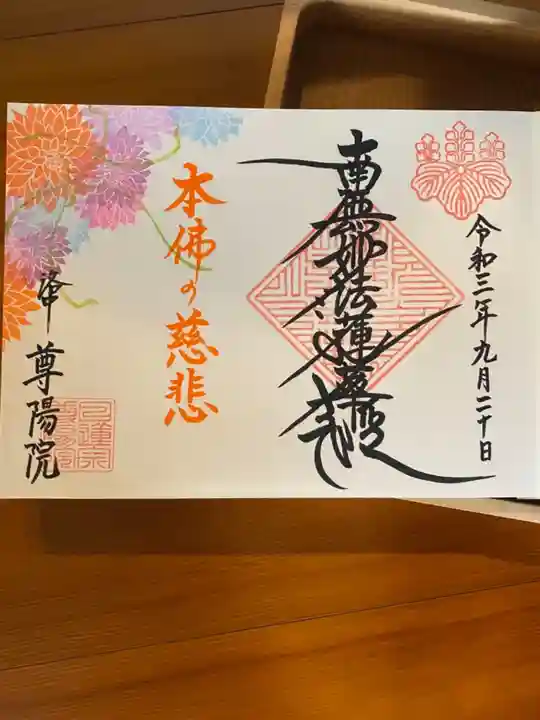 令和三年九月二十日
南無妙法蓮華経
本佛の慈悲
尊陽院
日蓮宗